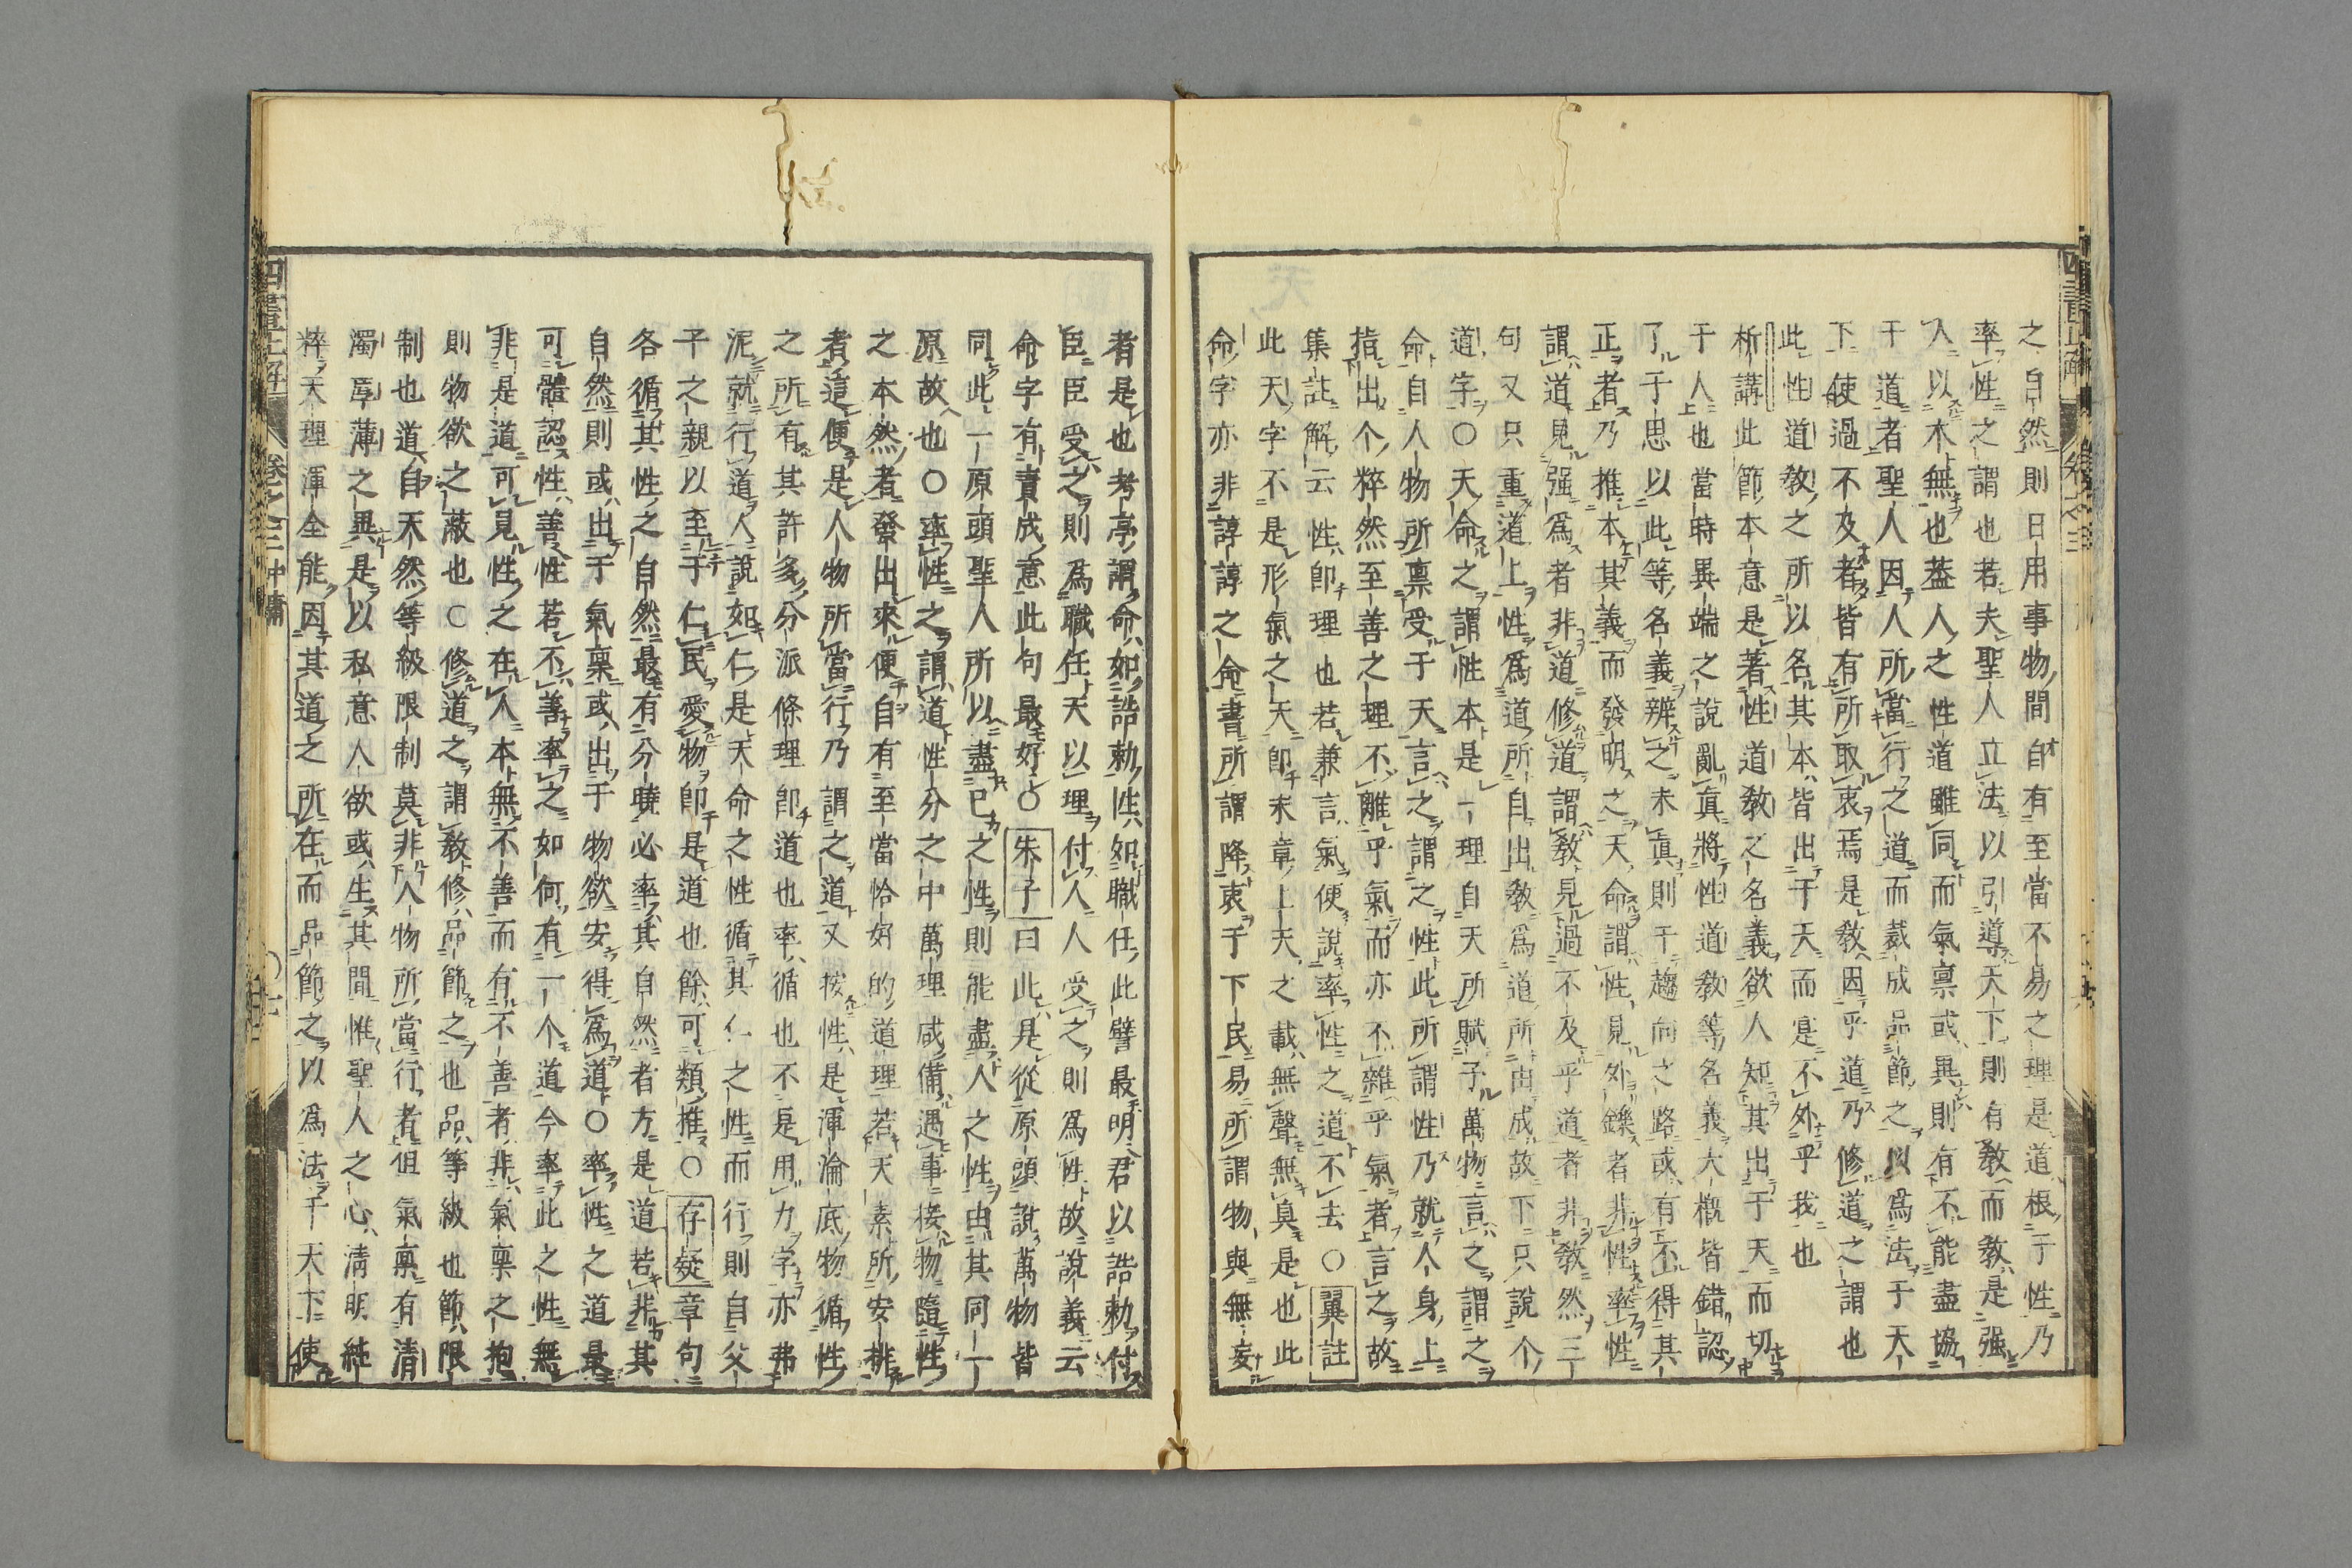 之自然則日用事物間自有至當不易之理是道根于性乃
率性之謂也若夫聖人立法以引導天下則有教而教是强
人以本無也葢人之性道雖同而氣禀或異則有不能盡協
于道者聖人因人所當行之道而裁成品節之以爲法于天
下使過不及者皆有所取衷焉是教因乎道乃修道之謂也
此性道教之所以名其本皆出于天而寔不外乎我也
析講此節本意是著性道教之名義欲人知其出于天而切
于人也當時異端之說亂眞將性道教等名義大概皆錯認
了子思以此等名義辨之未眞則于趨向之路或有不得其
正者乃推本其義而發明之天命謂性見外鑠者非性率性
謂道見强爲者非道修道謂教見過不及乎道者非教然三
句又只重道上性爲道所自出教爲道所由成故下只說个
道字〇天命之謂性本是一理自天所賦予萬物言之謂之
命自人物所禀受于天言之謂之性此所謂性乃就人身上
指出个粹然至善之理不離乎氣而亦不雜乎氣者言之故
集註解云性卽理也若兼言氣便說率性之道不去〇翼註
此天字不是形氣之天卽末章上天之載無聲無臭是也此
命字亦非諄諄之命書所謂降衷于下民易所謂物與無妄
者是也考亭謂命如誥勅性如職任此譬最明君以誥勅付
臣臣受之則爲職任天以理付人人受之則爲性故說義云
命字有責成意此句最好〇朱子曰此是從原頭說萬物皆
同此一原頭聖人所以盡己之性則能盡人之性由其同一
原故也〇率性之謂道性分之中萬理咸備遇事接物隨性
之本然者發出來便自有至當恰好的道理若天素所安排
者這便是人物所當行乃謂之道又按性是渾淪底物循性
之所有其許多分派條理卽道也率循也不是用力字亦弗
泥就行道人說如仁是天命之性循其仁之性而行則自父
子之親以至于仁民愛物卽是道也餘可類推〇存疑章句
各循其性之自然最有分曉必率其自然者方是道若非其
自然則或出于氣禀或出于物欲安得爲道〇率性之道最
可體認性善性若不善率之如何有一个道今率此之性無
非是道可見性之在人本無不善而有不善者非氣禀之拘
則物欲之蔽也〇修道之謂教修品節之也品等級也節限
制也道自天然等級限制莫非人物所當行者但氣禀有清
濁厚薄之異是以私意人欲或生其間惟聖人之心清明純
粹天理渾全能因其道之所在而品節之以爲法于天下使
四書正解
卷之三中庸